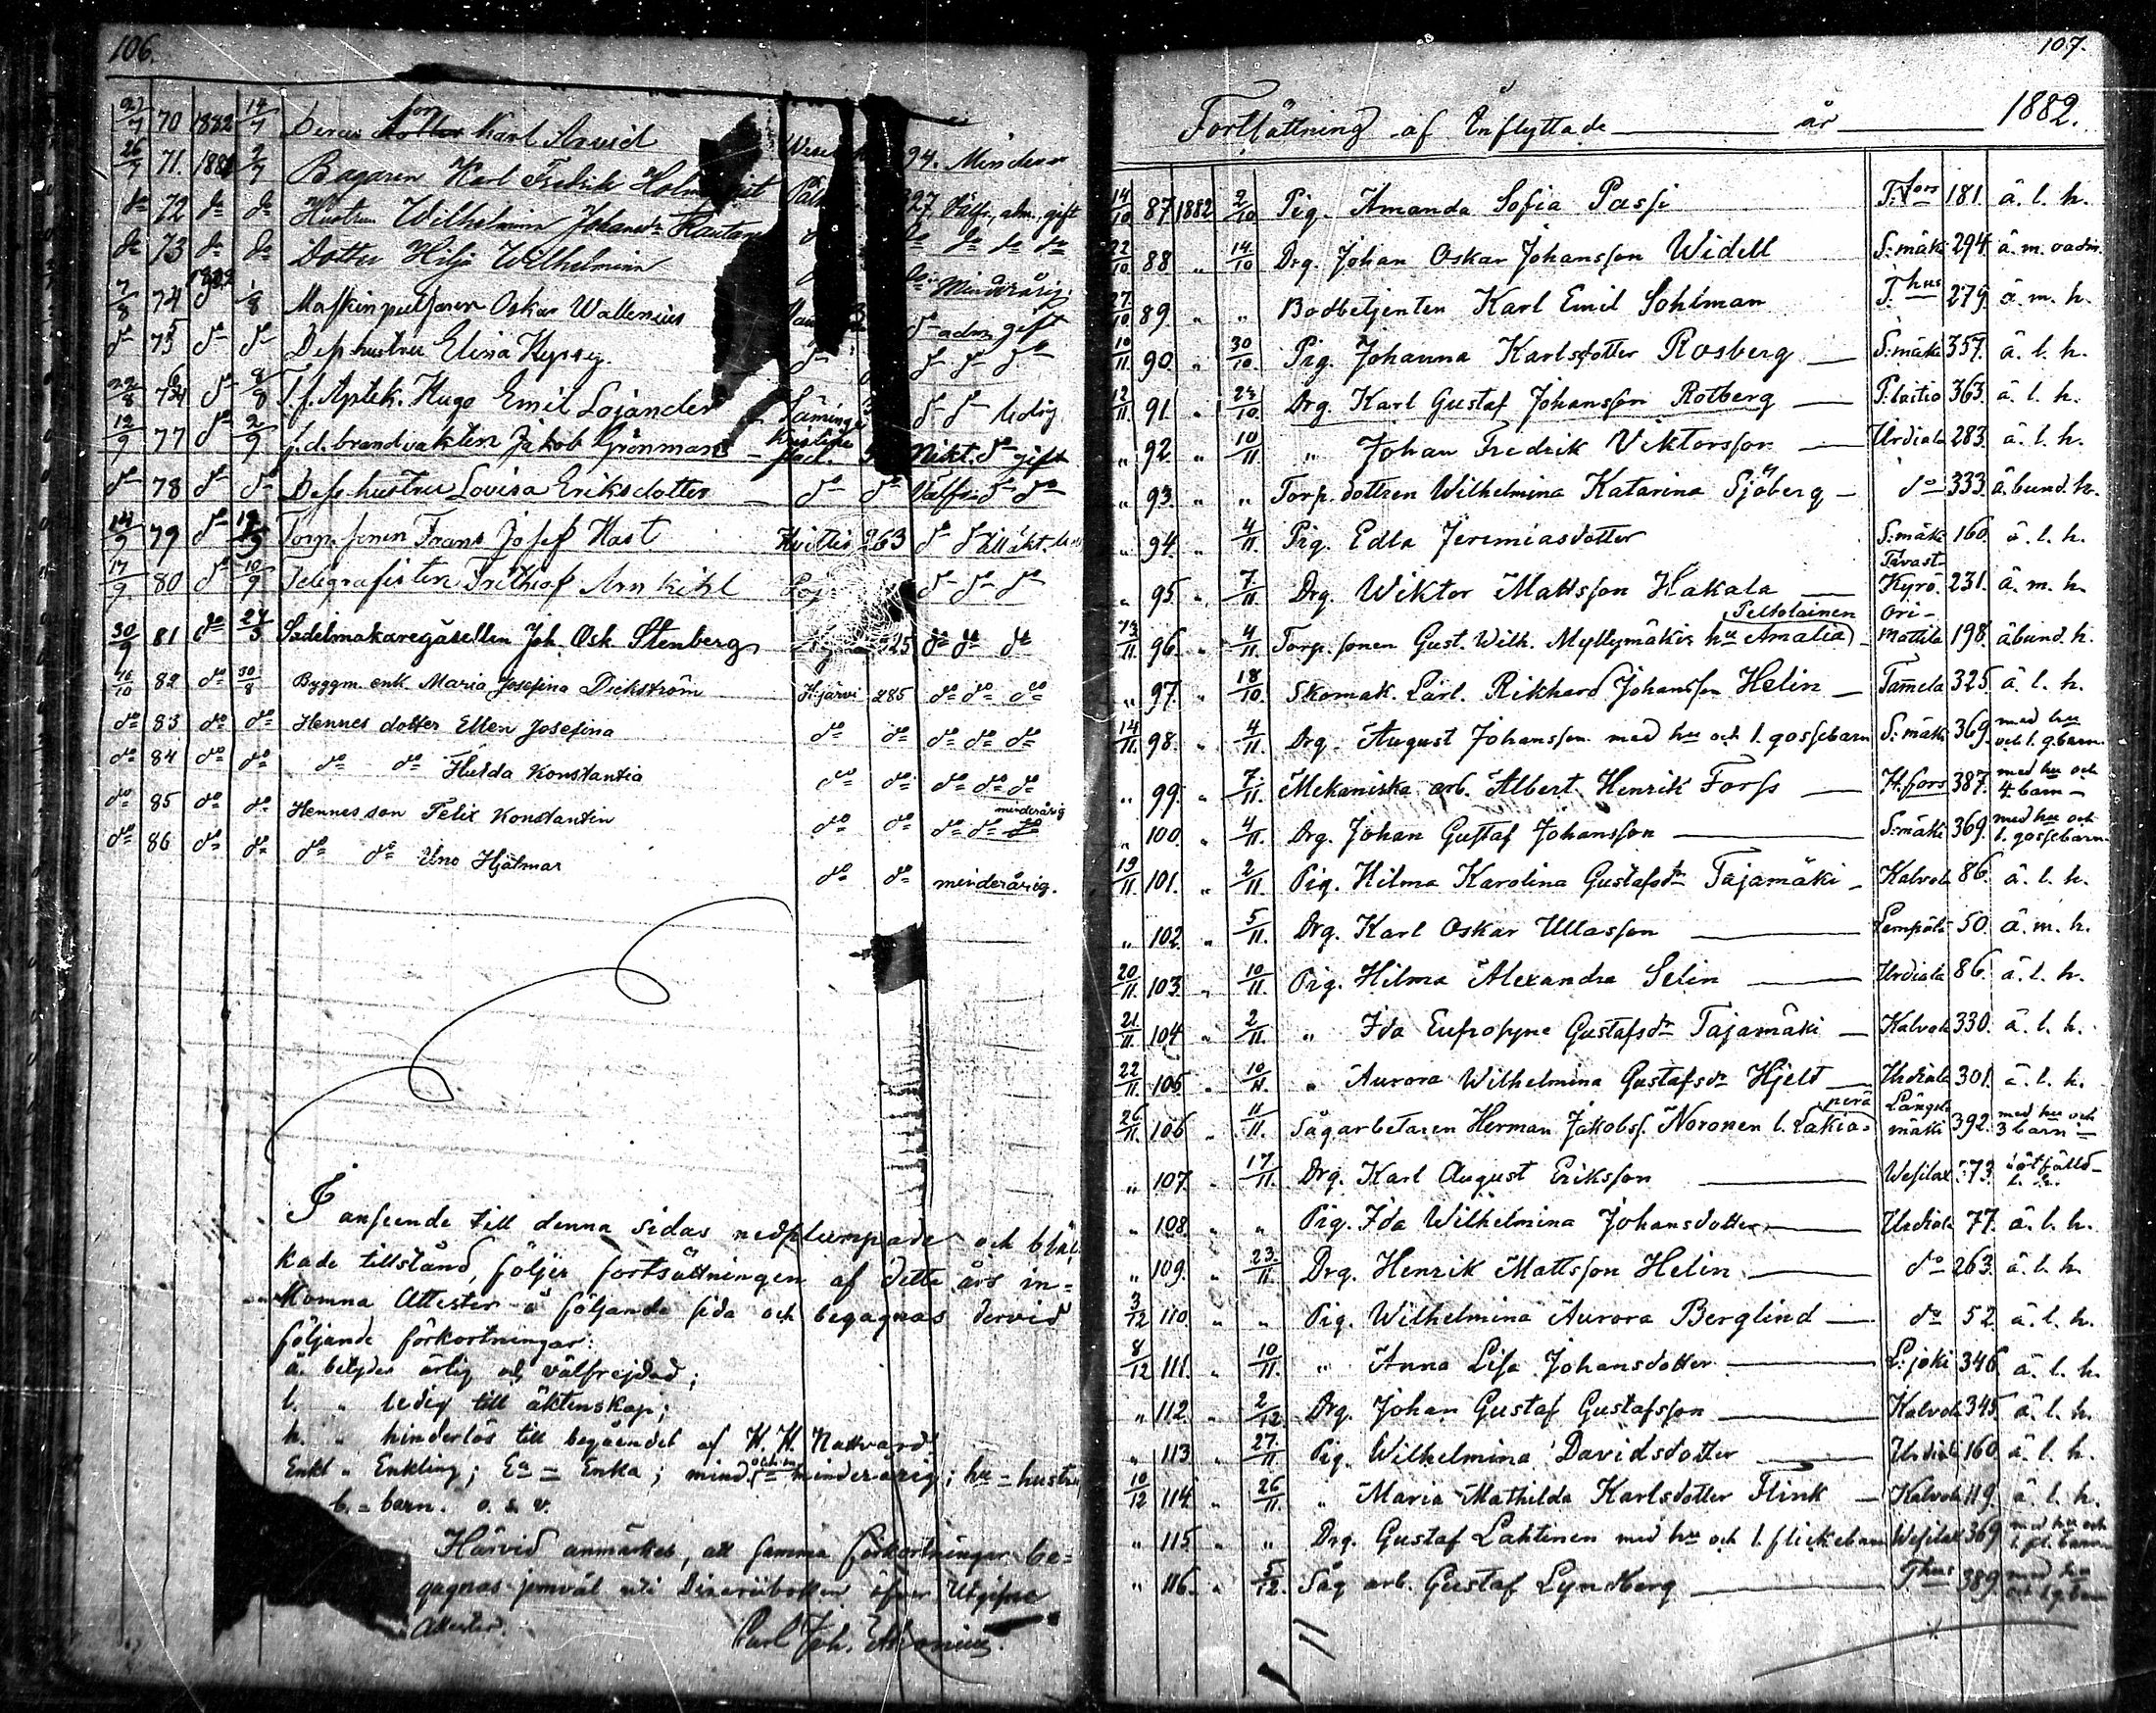 106.
27/7 70 1882 14/7 Deras son Karl Arvid 94. Minderår
26/7 71. 188 2/7 Bagaren Karl Fredrik Holm 327. Välfr., adm., gift
do 72 do do Hustrun Wilhelmina Johansdr Rautan do do do do
do 73 do do Dotter Hilja Wilhelmina do Minderårig.
7/8 74 1882 1/8 Maskinputsaren Oskar Wallenius do adm gift
do 75 do do Dess hustru Elina Kyrsy. do do do do
22/8 76 do 8/8 T. f. Aptek. Hugo Emil Lojander Säming do do ledig
12/9 77 do 2/9 f. d. brandvakten Jakob Grönman Kristine stad. Nikt. do gift
do 78 do do Dess hustru Lovisa Eriksdotter do do Välfr. do do
14/9 79 do Torp. sonen Frans Josef Hast Hvittis 263 do do till äkt. led
17/9 80 do 10/9 Telegrafisten Frithiof Arnkihl Loj do do do
30/9 81 do 24/3 Sadelmakaregesällen Joh. Osk. Stenberg 325 do do do
16/10 82 do 30/8 Byggm. enk. Maria Josefina Dickström Kjärvi 285 do do do
do 83 do do Hennes dotter Ellen Josefina do do do do do
do 84 do do do do Hulda Konstantia do do do do do
do 85 do do Hennes son Felix Konstantin do do do do minderårig
do 86 do do do do Uno Hjalmar do do minderårig.
I anseende till denna sidas nedplumpade och bläc-
kade tillstånd, följer fortsättningen af detta års in=
komna Attester å följande sida och begagnas dervid
följande förkortningar:
ä. betyder ärlig och välfrejdad;
l. " ledig till äktenskap;
h. " hinderlös till begående af H. H. Nattvard
Enkl " Enkling; Ea = Enka; mind. = minderårig; hu = hustru
b. = barn. o. s. v.
Härvid anmärkes, att samma förkortningar be=
gagnas jemväl uti Diarieboken öfver Utgifne
Attester.
Carl Joh.
107.
Fortsättning af Inflyttade år 1882.
14/10 87 1882 2/10 Pig. Amanda Sofia Passi T:fors 181. ä. l. h.
22/10 88 " 14/10 Drg. Johan Oskar Johansson Widell S:mäki 294. ä. m. oadm.
27/10 89. " " Bodbetjenten Karl Emil Sohlman T:hus 279. ä. m. h.
10/11 90. " 30/10 Pig. Johanna Karlsdotter Rosberg S:mäki 357. ä. l. h.
12/11 91. " 23/10 Drg. Karl Gustaf Johansson Rotberg P:laitio 363. ä. l. h.
" 92. " 10/11 " Johan Fredrik Viktorsson Urdiala 283. ä. l. h.
" 93. " " Torp. dottren Wilhelmina Katarina Sjöberg do 333. ä. bund. h.
" 94. " 4/11 Pig. Edla Jeremiasdotter S:mäki 160. ä. l. h.
" 95. " 7/11 Drg. Wiktor Mattsson Hakala Tavast- Kyrö. 231. ä. m. h.
13/11 96. " 4/11 Torp. sonen Gust. Wilh. Myllymäkis hu Amalia Peltolainen Ori- mattila 198. ä. bund. h.
" 97. " 18/10 Skomak. Lärl. Rikhard Johansson Helin Tam̄ela 325. ä. l. h.
14/11 98. " 4/11 Drg. August Johansson med hu och 1. gossebarn S:mäki 369. med hu och 1. g.barn.
" 99. " 7/11 Mekaniska arb. Albert Henrik Forss H:fors 387. med hu och 4. barn
" 100. " 4/11 Drg. Johan Gustaf Johansson S:mäki 369. med hu och 1. gossebarn
19/11 101. " 2/11 Pig. Hilma Karolina Gustafsdr Tajamäki Kalvola 86. ä. l. h.
" 102. " 5/11 Drg. Karl Oskar Ullasson Lempäla 50. ä. m. h.
20/11 103. " 10/11 Pig. Hilma Alexandra Selin Urdiala 86. ä. l. h.
21/11 104 " 2/11 " Ida Eufrosyne Gustafsdr Tajamäki Kalvola 330. ä. l. h.
22/11 105 " 10/11 " Aurora Wilhelmina Gustafsdr Hjelt Urdiala 301. ä. l. h.
26/11 106 " 11/11 Sågarbetaren Herman Jakobs. Noronen l. Lakiasperä Längel- mäki 392. med hu och 3 barn
" 107. " 17/11 Drg. Karl August Eriksson Wesilax 373.
" 108. " " Pig. Ida Wilhelmina Johansdotter Urdiala 77. ä. l. h.
" 109. " 23/11 Drg. Henrik Mattsson Helin do 263. ä. l. h.
3/12 110. " " Pig. Wilhelmina Aurora Berglind do 52. ä. l. h.
8/12 111. " 10/11 " Anna Lisa Johansdotter L:joki 346 ä. l. h.
" 112. " 2/12 Drg. Johan Gustaf Gustafsson Kalvola 345 ä. l. h.
" 113. " 27/11 Pig. Wilhelmina Davidsdotter Urdiala 160 ä. l. h.
10/12 114. " 26/11 " Maria Mathilda Karlsdotter Flink Kalvola 119. ä. l. h.
" 115. " " Drg. Gustaf Lahtinen med hu och 1. flickebarn Wesilax 369 med hu och 1. fl. barn
" 116. " 5/12 Såg arb. Gustaf Lyndberg T:hus 389 med hu